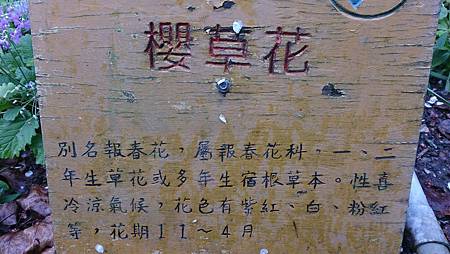 櫻草花
別名報春花，屬報春花科，一、二
年生草花或多年生宿根草本。性喜
冷涼氣候，花色有紫紅、白、粉紅
等，花期11～4月